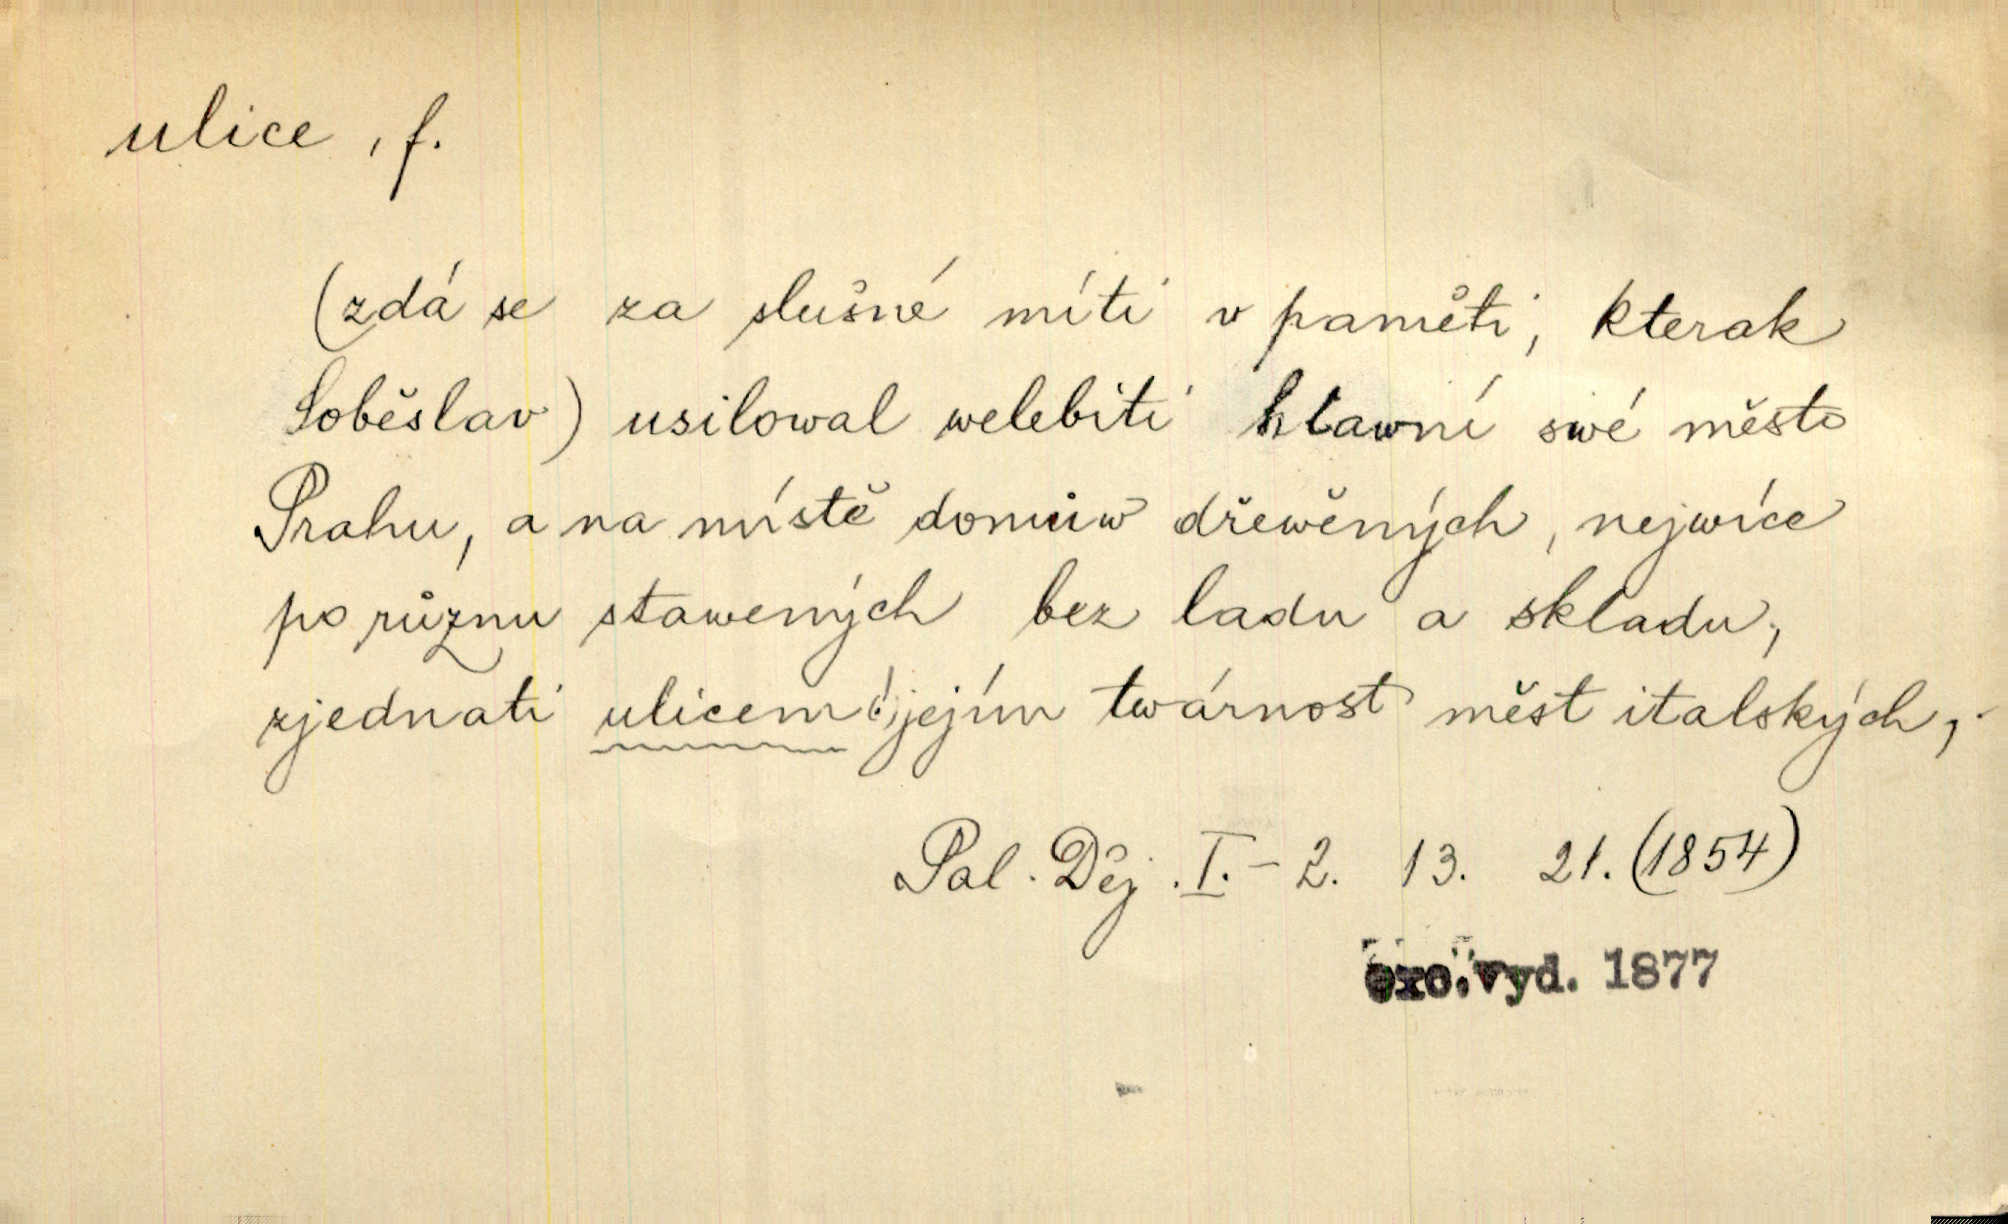 ulice, f.
(zdá se za slušné míti v paměti, kterak
Soběslav) usilowal welebiti hlawní swé město
Prahu, a na místě domůw dřewěných, nejwíce
po různu stawených bez ladu a skladu,
zjednati ulicem (!) jejím twárnost měst italských,
Pal. Děj. I.-2. 13. 21. (1854)
exc. vyd. 1877